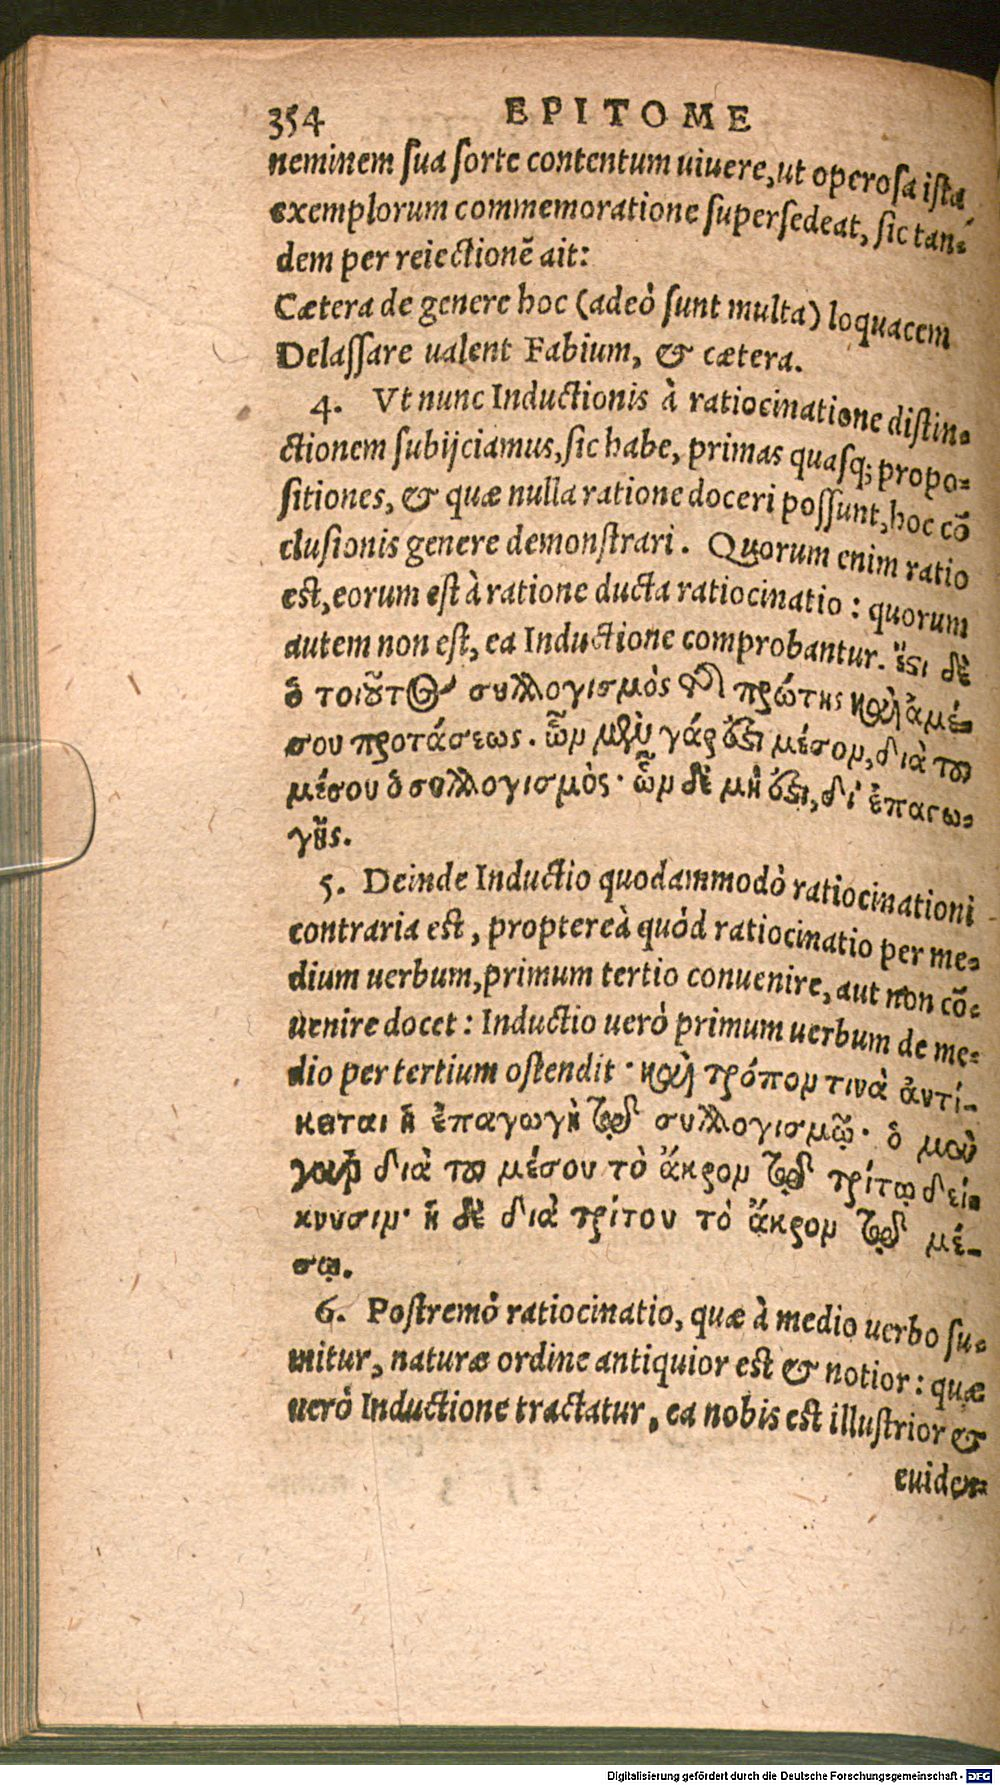 354 EPITOME
neminem sua sorte contentum uiuere, ut operosa ista
exemplorum commemoratione supersedeat, sic tan-
dem per reiectionẽ ait:
Cætera de genere hoc (adeò sunt multa) loquacem
Delassare ualent Fabium, & cætera.
4. Vt nunc Inductionis à ratiocinatione distin-
ctionem subijciamus, sic habe, primas quasq; propo-
sitiones, & quæ nulla ratione doceri possunt, hoc cõ
clusionis genere demonstrari. Quorum enim ratio
est, eorum est à ratione ducta ratiocinatio: quorum
autem non est, ea Inductione comprobantur. ἔστι δὲ
ὁ τοιοῦτος συλλογισμὸς τῆς πρώτης καὶ ἀμέ-
σου προτάσεως. ὧν μὲν γάρ ἐστι μέσον, διὰ τοῦ
μέσου ὁ συλλογισμὸς· ὧν δὲ μή ἐστι, δι' ἐπαγω-
γῆς.
5. Deinde Inductio quodammodò ratiocinationi
contraria est, proptereà quòd ratiocinatio per me-
dium uerbum, primum tertio conuenire, aut non cõ-
uenire docet: Inductio uerò primum uerbum de me-
dio per tertium ostendit· καὶ τρόπον τινὰ ἀντί-
κειται ἡ ἐπαγωγὴ τῷ συλλογισμῷ· ὁ μὲν
γὰρ διὰ τοῦ μέσου τὸ ἄκρον τῷ τρίτῳ δεί-
κνυσιν· ἡ δὲ διὰ τρίτου τὸ ἄκρον τῷ μέ-
σῳ.
6. Postremò ratiocinatio, quæ à medio uerbo su-
mitur, naturæ ordine antiquior est & notior: quæ
uerò Inductione tractatur, ea nobis est illustrior &
euiden-
Digitalisierung gefördert durch die Deutsche Forschungsgemeinschaft - DFG